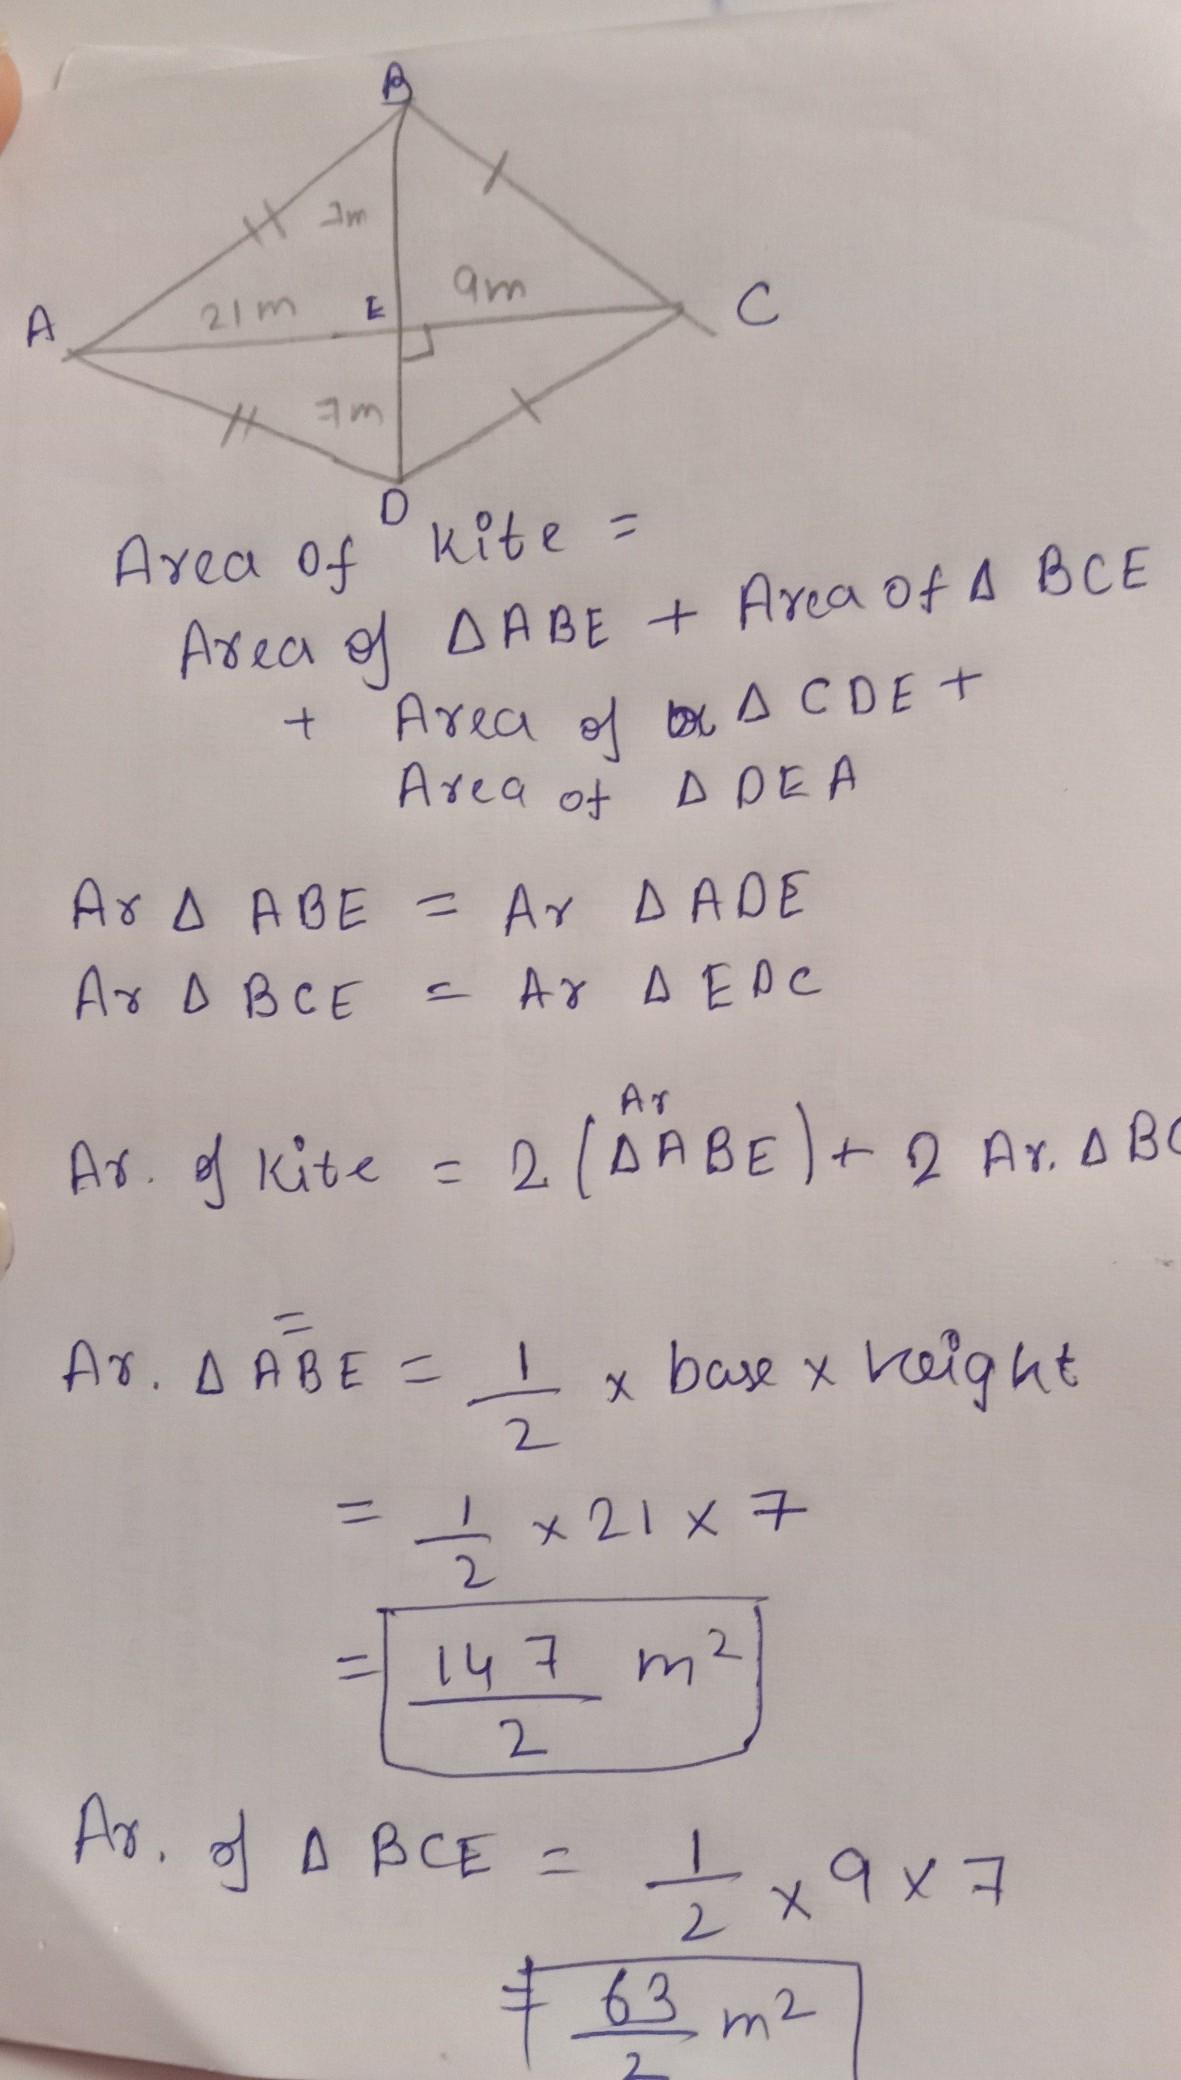 B
7m
9m
A 21m E C
7m
D
Area of kite =
Area of Δ ABE + Area of Δ BCE
+ Area of Δ CDE +
Area of Δ DEA
Ar Δ ABE = Ar Δ ADE
Ar Δ BCE = Ar Δ EDC
Ar
Ar. of kite = 2 (Δ ABE) + 2 Ar. Δ BC
=
Ar. Δ ABE = 1/2 × base × height
= 1/2 × 21 × 7
= 147/2 m²
Ar. of Δ BCE = 1/2 × 9 × 7
= 63/2 m²